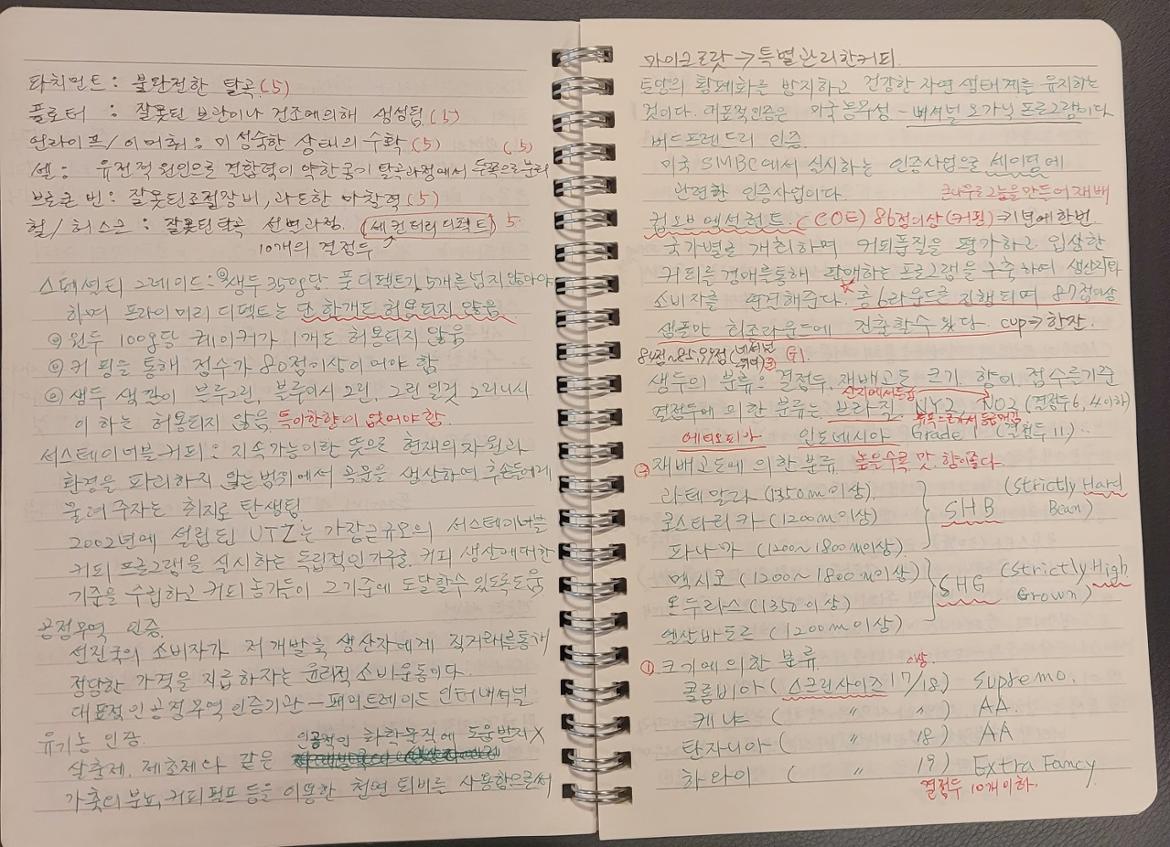 파치먼트 : 불완전한 탈곡 (5)
플로터 : 잘못된 보관이나 건조에 의해 생성됨 (5)
언라이프/이머춰 : 미성숙한 상태의 수확 (5) (5)
쉘 : 유전적 원인으로 결합력이 약한 콩이 탈곡과정에서 두쪽으로 분리
브로큰 빈 : 잘못된 조절장비, 과도한 마찰력 (5)
헐/허스크 : 잘못된 탈곡 선별과정. (세컨더리 디펙트) 5
10개의 결점두
스페셜티 그레이드 : ⓐ생두 350g당 풀 디펙트가 5개를 넘지 않아야
하며 프라이머리 디펙트는 단 한개도 허용되지 않음
ⓐ 원두 100g당 퀘이커가 1개도 허용되지 않음
ⓐ 커핑을 통해 점수가 80점 이상이어야 함
ⓐ 생두 색깔이 블루그린, 블루이시 그린, 그린 일것 그리니시
이하는 허용되지 않음, 특이한향이 없어야 함.
서스테이너블 커피 : 지속가능이란 뜻으로 현재의 자원과
환경을 파괴하지 않는 범위에서 곡물을 생산하여 후손에게
물려주자는 취지로 탄생됨
2002년에 설립된 UTZ는 가장 큰 규모의 서스테이너블
커피 프로그램을 실시하는 독립적인 기구로 커피 생산에 대한
기준을 수립하고 커피 농가들이 그 기준에 도달할수 있도록 도움
공정무역 인증.
선진국의 소비자가 저개발국 생산자에게 직거래를 통해
정당한 가격을 지급하자는 윤리적 소비운동이다.
대표적인 공정무역 인증기관 - 페어트레이드 인터내셔널
유기농 인증. 인공적인 화학물질에 도움받지 X
살충제, 제초제나 같은
가축의 분뇨, 커피펄프 등을 이용한 천연 퇴비를 사용함으로써
마이크로랏 → 특별관리한커피.
토양의 황폐화를 방지하고 건강한 자연 생태계를 유지하는
것이다. 대표적인증은 미국농무성 - 내셔널 오가닉 프로그램이다
버드프렌드리 인증.
미국 SMBC에서 실시하는 인증사업으로 셰이딩에
관련한 인증사업이다. 큰나무로 그늘을 만들어 재배
컵오브엑설런트 (COE) 86점이상(커핑) 1년에한번.
국가별로 개최하며 커피품질을 평가하고 입상한
커피를 경매를통해 판매하는 프로그램을 구축하여 생산자와
소비자를 연결해준다. 총 6라운드로 진행되며 87점이상
샘플만 최초라운드에 진출할수 있다. cup → 한잔.
84점~85.99점 (내셔널 G1.
생두의 분류는 결점두, 재배고도 크기, 향미, 점수를기준
결점두에 의한 분류는 브라질 NY2, NO2 (결점두6, 4이하)
에티오피아 인도네시아 Grade 1 (결점두 11)..
재배고도에 의한 분류. 높을수록 맛, 향이좋다
과테말라 (1350m이상) (Strictly Hard
코스타리카 (1200m이상) SHB Bean)
파나마 (1200~1800m이상)
멕시코 (1200~1800m이상) (Strictly High
온두라스 (1350이상) SHG Grown)
엘살바도르 (1200m이상)
① 크기에 의한 분류 이상.
콜롬비아 (스크린사이즈 17/18) Supremo.
케냐 ( 〃 〃 ) AA.
탄자니아 ( 〃 18) AA
하와이 ( 〃 19) Extra Fancy
결점두 10개이하.